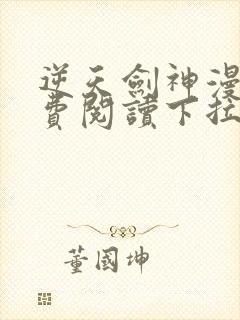 逆天劍神漫
費閱讀下拉
董國坤